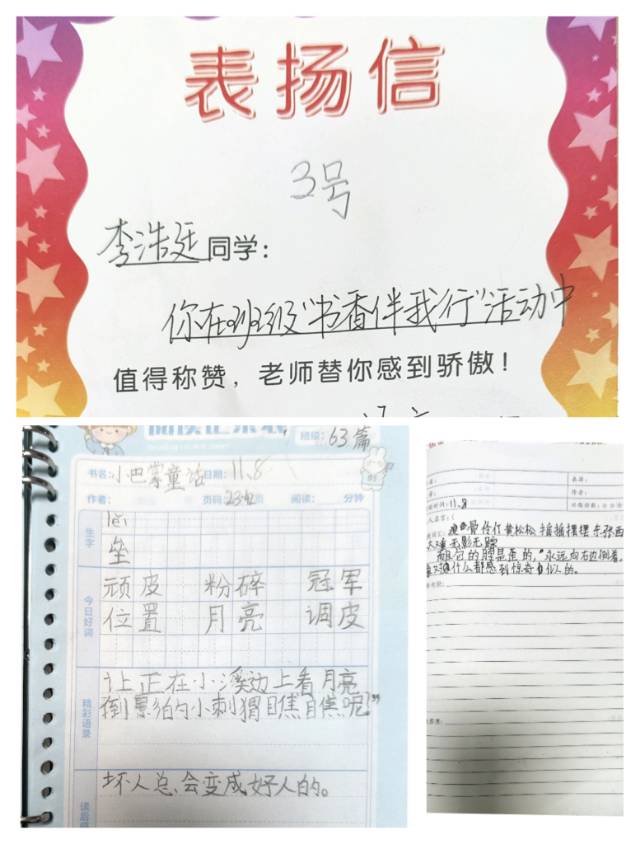 表扬信
3号
李浩廷同学：
你在班级“书香伴我行”活动中
值得称赞，老师替你感到骄傲！
阅读记录表
班级： 63篇
书名：小巴掌童话 日期：11.8
作者： 页码 阅读： 分钟
生字
垒
今日好词
顽皮 粉碎 冠军
位置 月亮 调皮
精彩语录
让正在小溪边上看月亮
倒影的小刺猬瞧瞧呢！”
坏人总会变成好人的。
11.8
伶仃 黄松松 摇摇摆摆 东张西
无影无踪
的脖是歪的，“永远向右边倒着。
什么都感到惊奇似的。